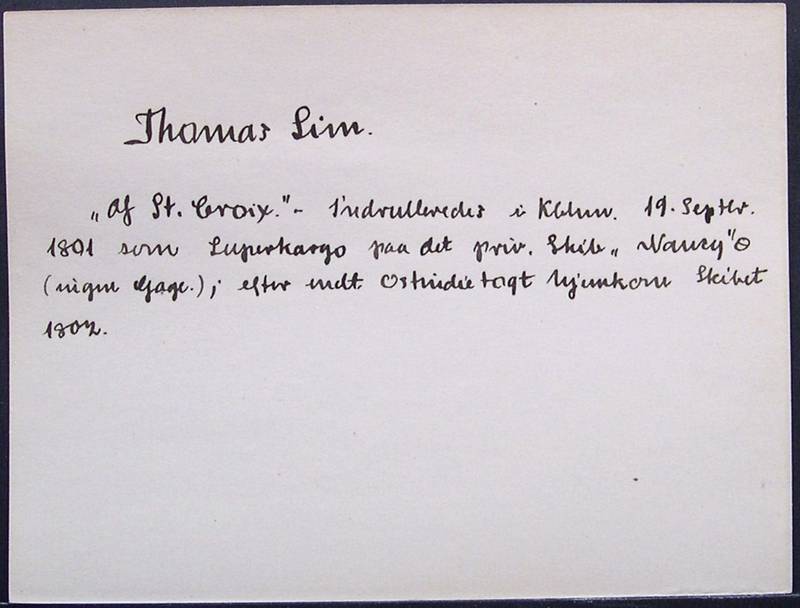 Thomas Lim.
„Af St. Croix." - Indrulleredes i Kbhvn. 19. Septbr.
1801 som Superkargo paa det priv. Skib „Nancy"
(ingen Gage.); efter endt Ostindietogt hjemkom Skibet
1802.